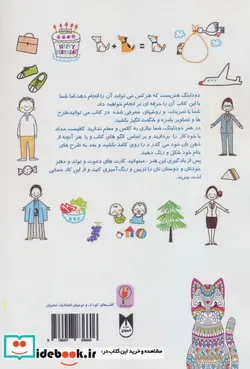 HAPPY BIRTHDAY
دودلینگ هنریست که هر کس می تواند آن را انجام دهد، اما شما
با این کتاب آن را حرفه ای تر انجام خواهید داد.
شما با تمرینات و روشهای معرفی شده در کتاب می توانید طرح
ها و تصاویر بامزه و شگفت انگیز بکشید.
در هنر دودلینگ، شما نیازی به کلاس و معلم ندارید کافیست مداد
یا خودکار را بردارید و بر اساس الگو های کتاب و یا هر آنچه از
ذهن تان خود می گذرد را روی کاغذ بکشید و بعد به طرح های
خام خود شکل و رنگ دهید.
پس از یادگیری این هنر میتوانید کارت های دعوت و تولد و دفتر
خودتان و دوستان تان را تزیین و رنگ آمیزی کنید و از این کار بسی
لذت ببرید.
کتاب‌های کودک و نوجوان انتشارات
مشاهده و خرید این کتاب در:
iidebook.ir